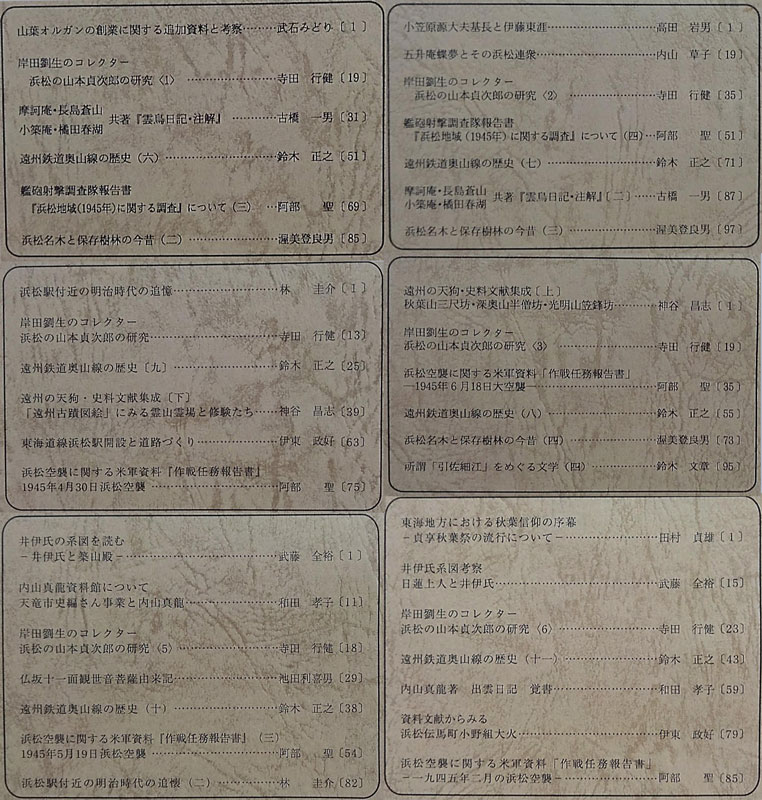 山葉オルガンの創業に関する追加資料と考察………武石みどり〔1〕
岸田劉生のコレクター
浜松の山本貞次郎の研究〈1〉………寺田 行健〔19〕
摩訶庵・長島蒼山
小築庵・橘田春湖 共著『雲鳥日記・注解』………古橋 一男〔31〕
遠州鉄道奥山線の歴史（六）………鈴木 正之〔51〕
艦砲射撃調査隊報告書
『浜松地域(1945年)に関する調査』について（三）…阿部 聖〔69〕
浜松名木と保存樹林の今昔（二）………渥美登良男〔85〕
小笠原源大夫基長と伊藤東涯………高田 岩男〔1〕
五升庵蝶夢とその浜松連衆………内山 草子〔19〕
岸田劉生のコレクター
浜松の山本貞次郎の研究〈2〉………寺田 行健〔35〕
艦砲射撃調査隊報告書
『浜松地域(1945年)に関する調査』について（四）…阿部 聖〔51〕
遠州鉄道奥山線の歴史（七）………鈴木 正之〔71〕
摩訶庵・長島蒼山
小築庵・橘田春湖 共著『雲鳥日記・注解』〔二〕………古橋 一男〔87〕
浜松名木と保存樹林の今昔（三）………渥美登良男〔97〕
浜松駅付近の明治時代の追憶………林 圭介〔1〕
岸田劉生のコレクター
浜松の山本貞次郎の研究………寺田 行健〔13〕
遠州鉄道奥山線の歴史〔九〕………鈴木 正之〔25〕
遠州の天狗・史料文献集成〔下〕
「遠州古蹟図絵」にみる霊山霊場と修験たち……神谷 昌志〔39〕
東海道線浜松駅開設と道路づくり………伊東 政好〔63〕
浜松空襲に関する米軍資料『作戦任務報告書』
1945年4月30日浜松空襲………阿部 聖〔75〕
遠州の天狗・史料文献集成〔上〕
秋葉山三尺坊・深奥山半僧坊・光明山笠鋒坊………神谷 昌志〔1〕
岸田劉生のコレクター
浜松の山本貞次郎の研究〈3〉………寺田 行健〔19〕
浜松空襲に関する米軍資料「作戦任務報告書」
―1945年6月18日大空襲………阿部 聖〔35〕
遠州鉄道奥山線の歴史（八）………鈴木 正之〔55〕
浜松名木と保存樹林の今昔（四）………渥美登良男〔73〕
所謂「引佐細江」をめぐる文学（四）………鈴木 文章〔95〕
井伊氏の系図を読む
－井伊氏と築山殿－………武藤 全裕〔1〕
内山真龍資料館について
天竜市史編さん事業と内山真龍………和田 孝子〔11〕
岸田劉生のコレクター
浜松の山本貞次郎の研究〈5〉………寺田 行健〔18〕
仏坂十一面観世音菩薩由来記………池田利喜男〔29〕
遠州鉄道奥山線の歴史（十）………鈴木 正之〔38〕
浜松空襲に関する米軍資料『作戦任務報告書』（三）
1945年5月19日浜松空襲………阿部 聖〔54〕
浜松駅付近の明治時代の追懐（二）………林 圭介〔82〕
東海地方における秋葉信仰の序幕
－貞享秋葉祭の流行について－………田村 貞雄〔1〕
井伊氏系図考察
日蓮上人と井伊氏………武藤 全裕〔15〕
岸田劉生のコレクター
浜松の山本貞次郎の研究〈6〉………寺田 行健〔23〕
遠州鉄道奥山線の歴史（十一）………鈴木 正之〔43〕
内山真龍著 出雲日記 覚書………和田 孝子〔59〕
資料文献からみる
浜松伝馬町小野組大火………伊東 政好〔79〕
浜松空襲に関する米軍資料「作戦任務報告書』
－一九四五年二月の浜松空襲－………阿部 聖〔85〕